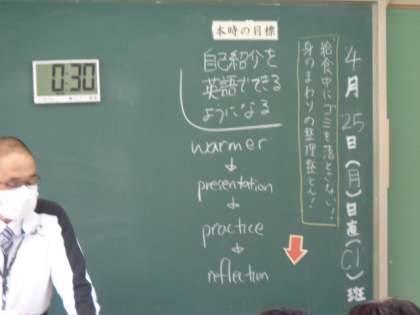 0:30
本時の目標
自己紹介を
英語でできる
ようになる
warmer
presentation
practice
reflection
給食中にゴミを落とさない!
身のまわりの整理整とん!
4月25日(月)日直(C1)班